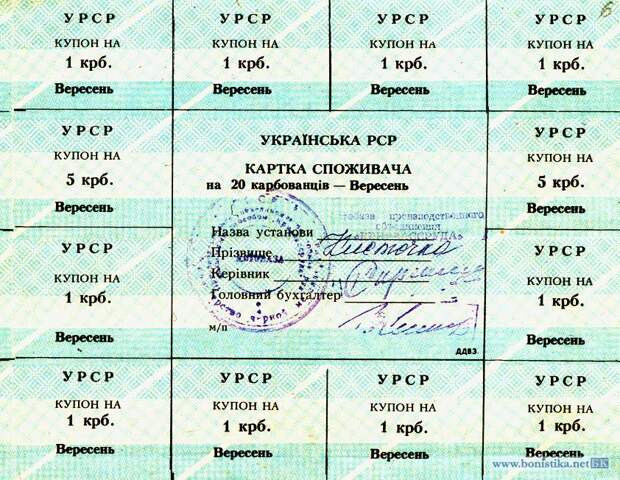 УРСР
КУПОН НА
1 крб.
Вересень
УРСР
КУПОН НА
1 крб.
Вересень
УРСР
КУПОН НА
1 крб.
Вересень
УРСР
КУПОН НА
1 крб.
Вересень
УРСР
КУПОН НА
5 крб.
Вересень
УКРАЇНСЬКА РСР
КАРТКА СПОЖИВАЧА
на 20 карбованців — Вересень
Назва установи
Прізвище
Керівник
Головний бухгалтер
м/п
ДДВЗ
УРСР
КУПОН НА
5 крб.
Вересень
УРСР
КУПОН НА
1 крб.
Вересень
УРСР
КУПОН НА
1 крб.
Вересень
УРСР
КУПОН НА
1 крб.
Вересень
УРСР
КУПОН НА
1 крб.
Вересень
УРСР
КУПОН НА
1 крб.
Вересень
УРСР
КУПОН НА
1 крб.
Вересень
www.bonistika.net БК